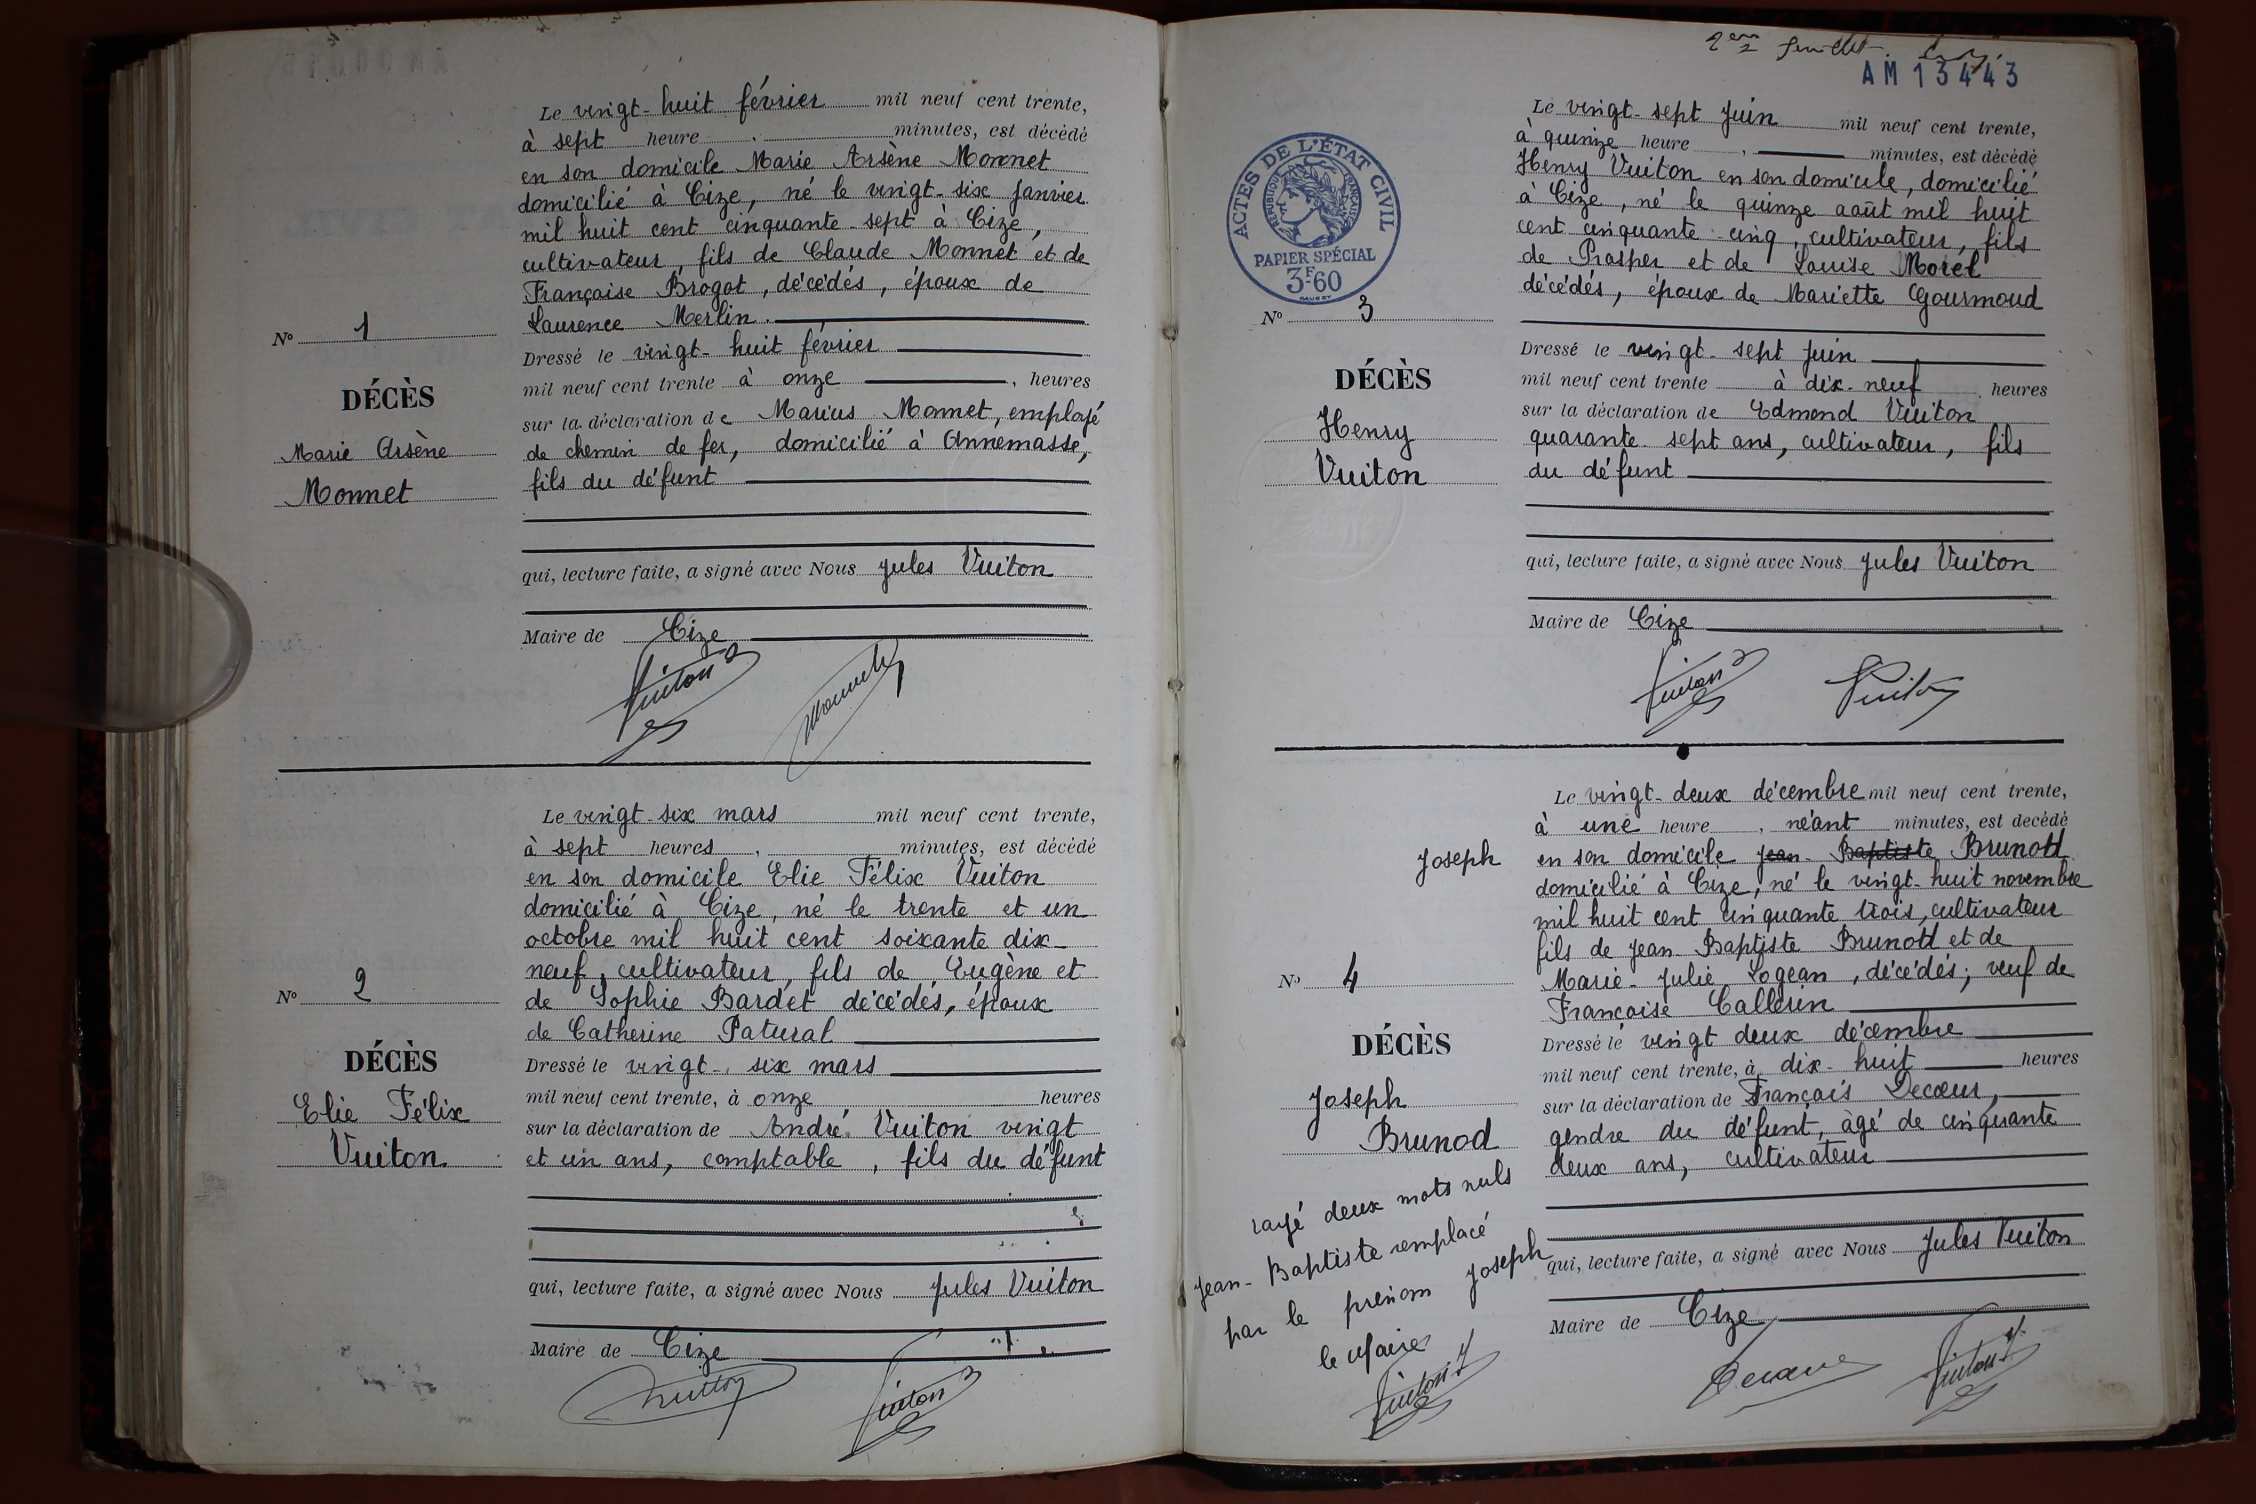 Le vingt-huit février mil neuf cent trente,
à sept heure minutes, est décédé
en son domicile Marie Arsène Monnet
domicilié à Cize, né le vingt-six janvier
mil huit cent cinquante-sept à Cize,
cultivateur, fils de Claude Monnet et de
Françoise Brogat, décédés, époux de
Laurence Merlin.
Dressé le vingt-huit février
mil neuf cent trente à onze, heures
sur la déclaration de Marius Monnet, employé
de chemin de fer, domicilié à Annemasse,
fils du défunt
qui, lecture faite, a signé avec Nous Jules Vuiton
Maire de Cize
Vuiton J
Monnet
No 1
DÉCÈS
Marie Arsène
Monnet
Le vingt-six mars mil neuf cent trente,
à sept heures, minutes, est décédé
en son domicile Elie Félix Vuiton
domicilié à Cize, né le trente et un
octobre mil huit cent soixante dix-
neuf, cultivateur, fils de Eugène et
de Sophie Bardet décédés, époux
de Catherine Patural
Dressé le vingt-six mars
mil neuf cent trente, à onze heures
sur la déclaration de André Vuiton vingt
et un ans, comptable, fils du défunt
qui, lecture faite, a signé avec Nous Jules Vuiton
Maire de Cize
Vuiton
Vuiton J
No 2
DÉCÈS
Elie Félix
Vuiton.
AM 13443
ACTES DE L'ÉTAT CIVIL
RÉPUBLIQUE FRANÇAISE
PAPIER SPÉCIAL
3F60
Le vingt-sept Juin mil neuf cent trente,
à quinze heure, minutes, est décédé
Henry Vuiton en son domicile, domicilié
à Cize, né le quinze août mil huit
cent cinquante-cinq, cultivateur, fils
de Prosper et de Louise Morel
décédés, époux de Mariette Gourmoud
Dressé le vingt-sept Juin
mil neuf cent trente à dix-neuf heures
sur la déclaration de Edmond Vuiton
quarante-sept ans, cultivateur, fils
du défunt
qui, lecture faite, a signé avec Nous Jules Vuiton
Maire de Cize
Vuiton J
Vuiton
No 3
DÉCÈS
Henry
Vuiton
Le vingt-deux décembre mil neuf cent trente,
à une heure, néant minutes, est décédé
Joseph en son domicile Jean-Baptiste Brunod
domicilié à Cize, né le vingt-huit novembre
mil huit cent cinquante trois, cultivateur
fils de Jean Baptiste Brunod et de
Marie-Julie Logean, décédés; veuf de
Françoise Callerin
Dressé le vingt deux décembre
mil neuf cent trente, à dix-huit heures
sur la déclaration de François Decœur,
gendre du défunt, âgé de cinquante
deux ans, cultivateur
qui, lecture faite, a signé avec Nous Jules Vuiton
Maire de Cize
Decœur
Vuiton J
No 4
DÉCÈS
Joseph
Brunod
rayé deux mots nuls
Jean-Baptiste remplacé
par le prénom Joseph
le Maire
Vuiton J